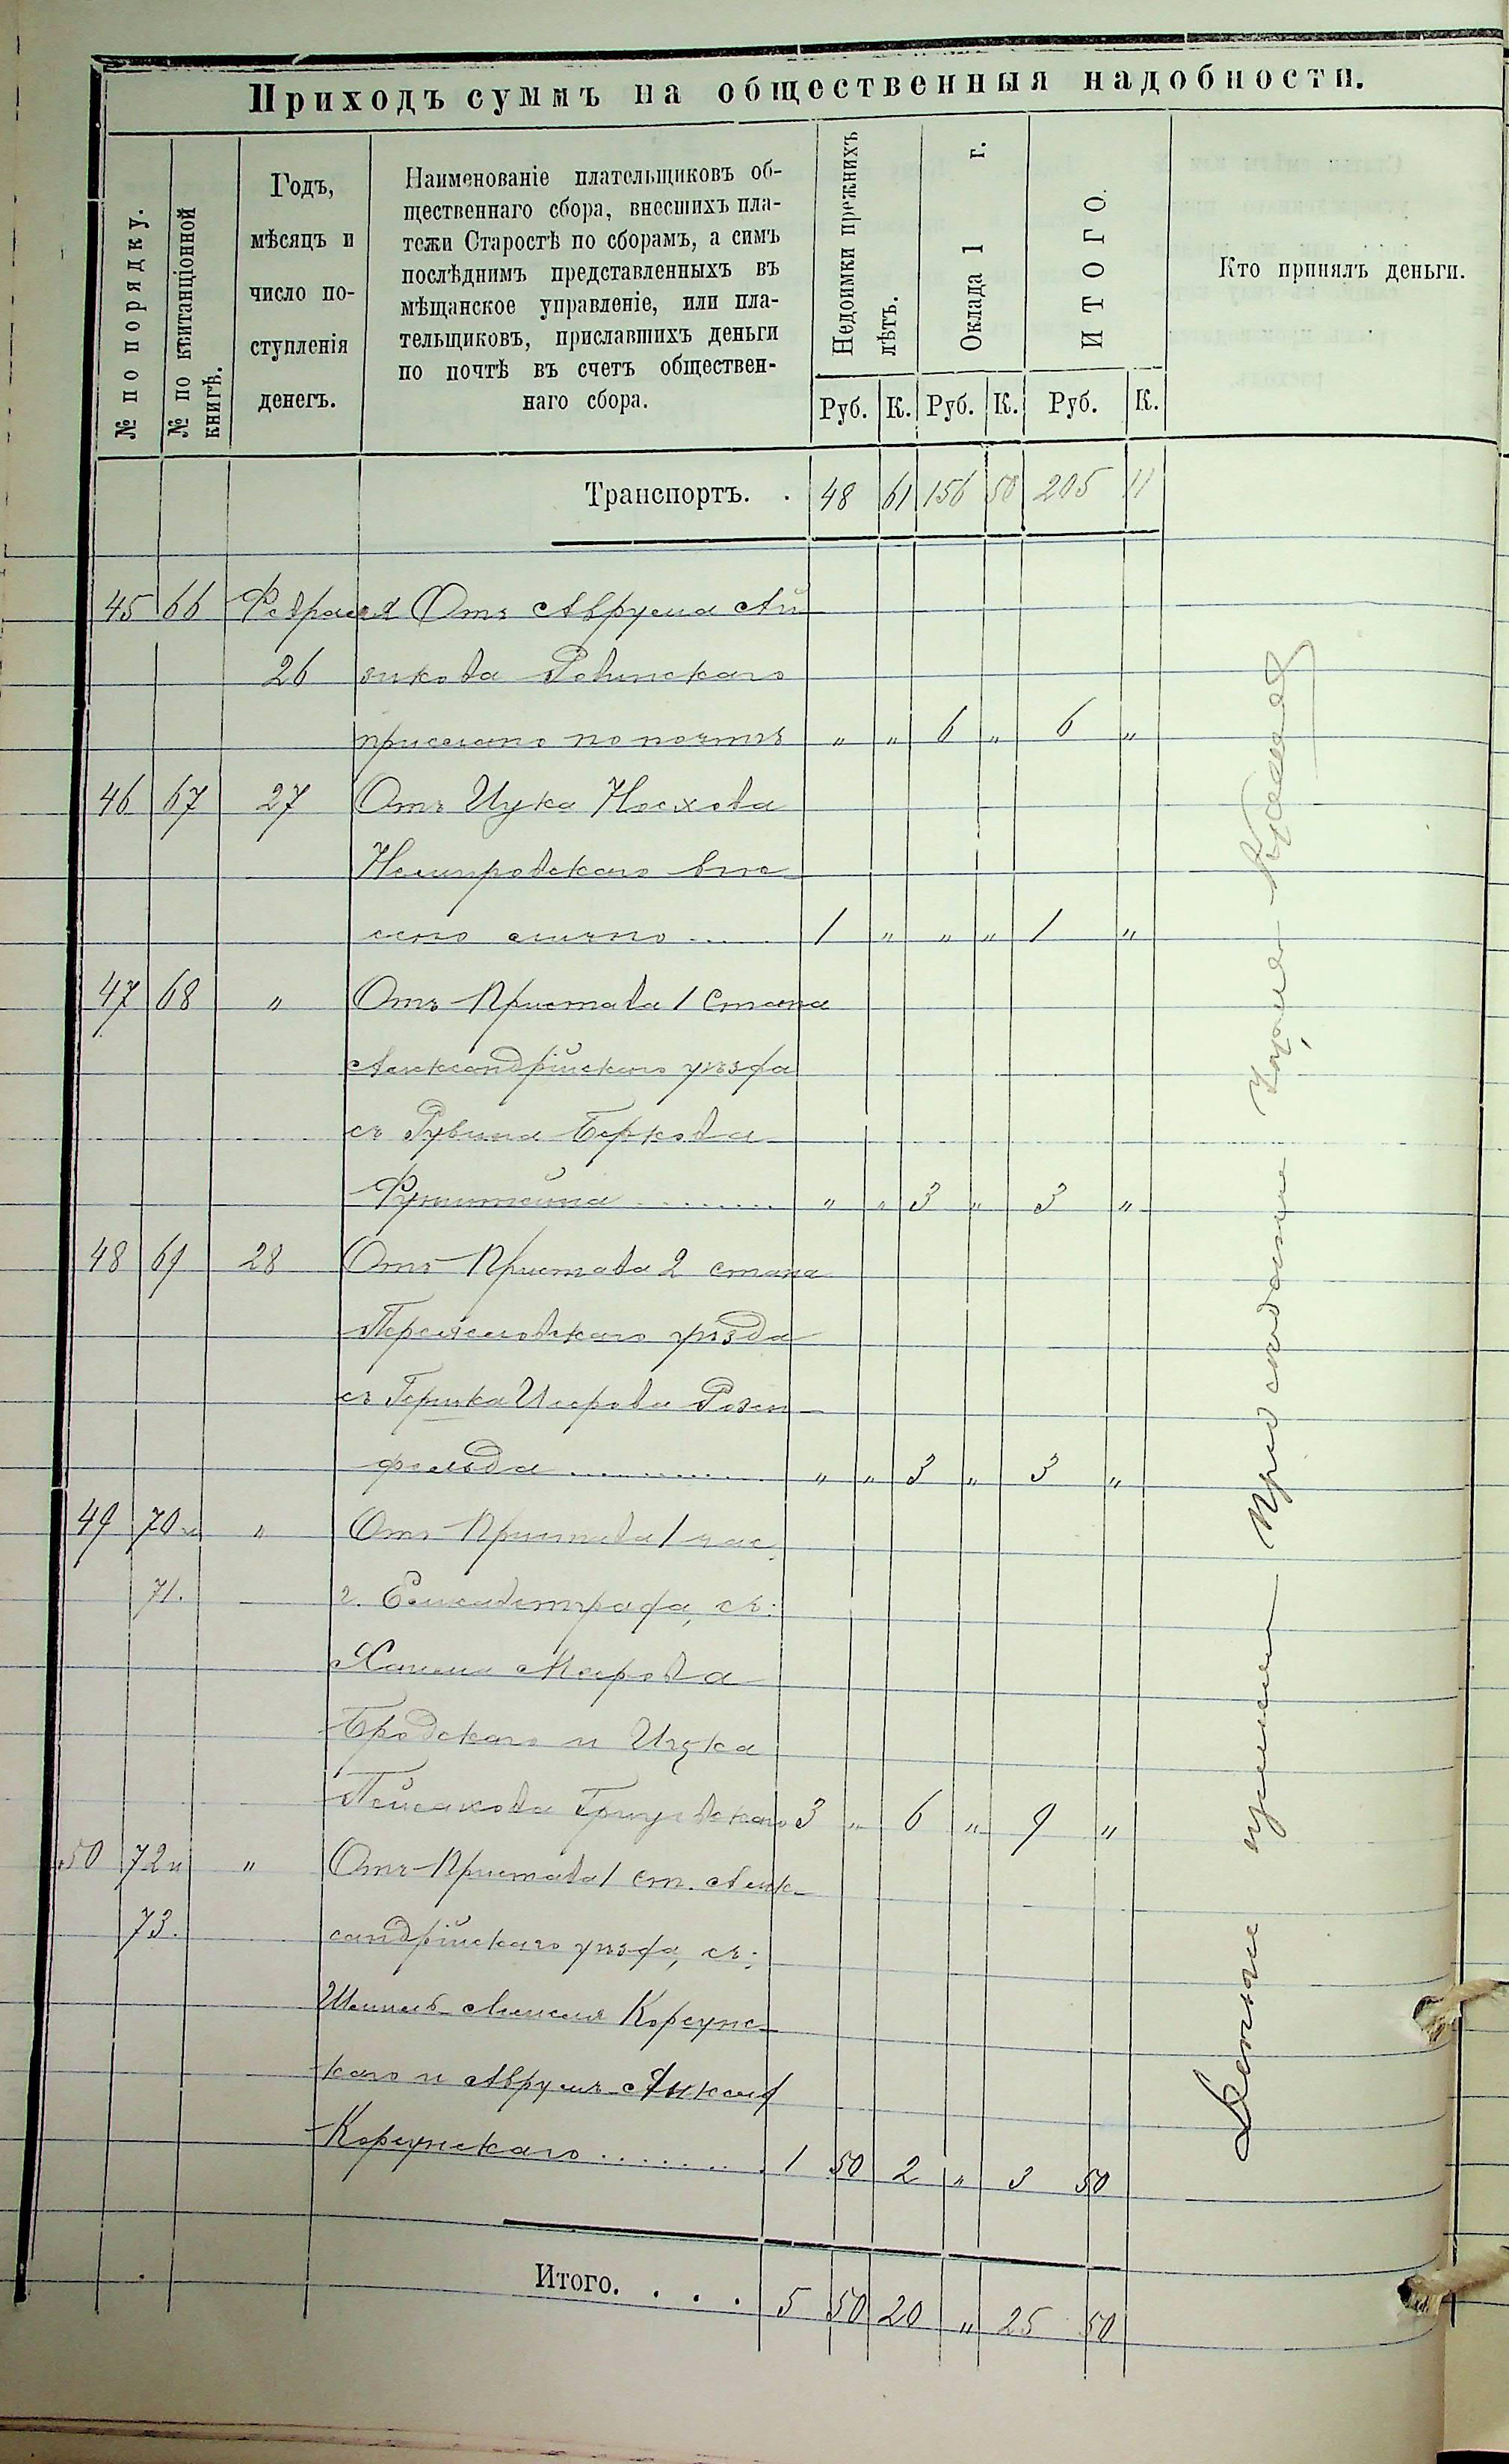 Приходъ суммъ на общественныя надобности.
№ по порядку.
№ по квитанціонной
книгѣ.
Годъ,
мѣсяцъ и
число по-
ступленія
денегъ.
Наименованіе плательщиковъ об-
щественнаго сбора, внесшихъ пла-
тежи Старостѣ по сборамъ, а симъ
послѣднимъ представленныхъ въ
мѣщанское управленіе, или пла-
тельщиковъ, приславшихъ деньги
по почтѣ въ счетъ обществен-
наго сбора.
Недоимки прежнихъ
лѣтъ.
Оклада 1 г.
ИТОГО.
Кто принялъ деньги.
Руб. К. Руб. К. Руб. К.
Транспортъ. . 48 61 156 50 205 11
45 66 Февраля Отъ Аврума Ай
26 зикова Ровинскаго
прислано по почтѣ " " 6 " 6 "
46 67 27 Отъ Ицка Носхова
Немировскаго вне
сено лично .... 1 " " " 1 "
47 68 " Отъ Пристава 1 Стана
Александрійскаго уѣзда
съ Рувина Беркова
........ " " 3 " 3 "
48 69 28 Отъ Пристава 2 стана
Переяславскаго уѣзда
съ Гершка Иосрова Розен-
фельда ............ " " 3 " 3 "
49 70 и " Отъ Пристава 1 час.
71. г. Елисаветграда, съ:
Меерова
Бродскаго и Ицка
Пейсахова 3 " 6 " 9 "
50 72 и " Отъ Пристава 1 ст. Алек-
73. сандрійскаго уѣзда, съ:
Корсунс-
каго и Аврумъ-
Корсунскаго ....... 1 50 2 " 3 50
Итого. . . . 5 50 20 " 25 50
Деньги принялъ